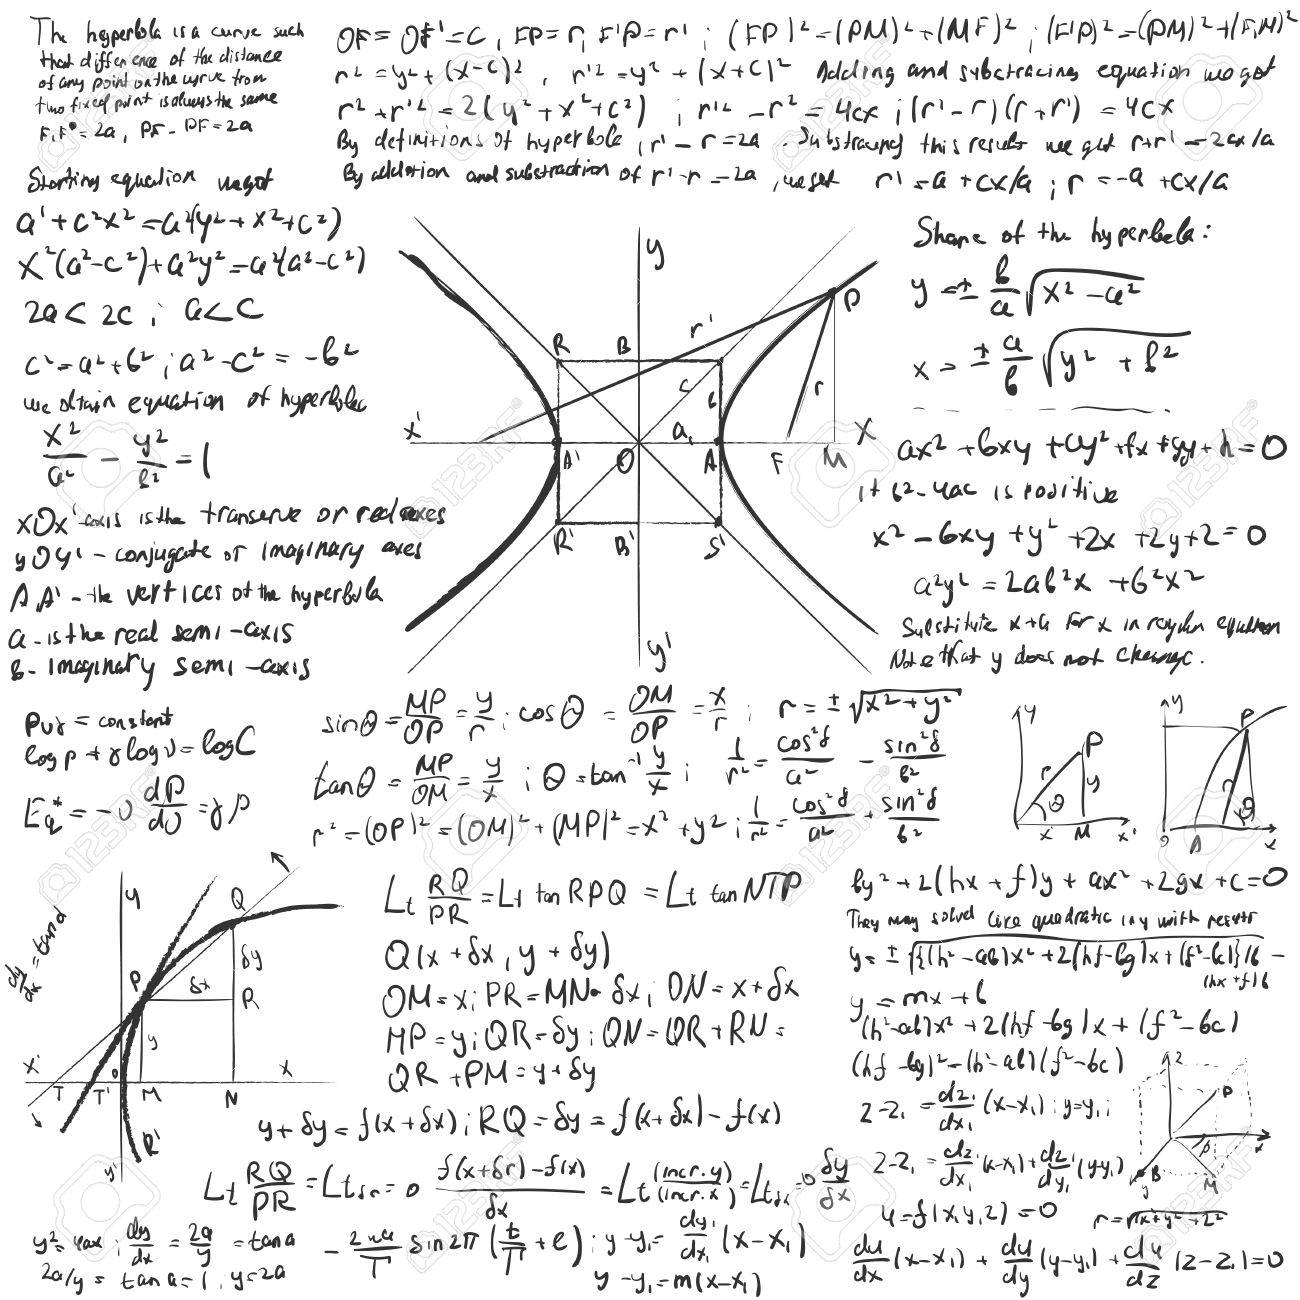 The hyperbola is a curve such
that difference of the distance
of any point on the curve from
two fixed point is always the same
F,F' = 2a, PF - PF = 2a
OF = OF' = c, FP = r, F'P = r' ; (FP)² = (PM)² + (MF)² ; (F'P)² = (PM)² + (F,M)²
r² = y² + (x-c)², r'² = y² + (x+c)² Adding and subctracing equation we got
r² + r'² = 2(y² + x² + c²) ; r'² - r² = 4cx ; (r' - r)(r + r') = 4cx
By definitions of hyperbole, r' - r = 2a. Substracing this result we got r+r' = 2cx/a
By addition and substraction of r' - r = 2a, we get r' = a + cx/a ; r = -a + cx/a
Starting equation we got
a' + c²x² = a²(y² + x² + c²)
x²(a² - c²) + a²y² = a²(a² - c²)
2a < 2c ; a < c
c² = a² + b² ; a² - c² = -b²
we obtain equation of hyperbolec
x²/a² - y²/b² = 1
xOx' - axis is the transerve or real axes
yOy' - conjugate or imaginary axes
A,A' - the vertices of the hyperbula
a - is the real semi-axis
b - imaginary semi-axis
y
P
R B r'
c b r
x' a, X
A' O A F M
R' B' S'
y'
Shape of the hyperbola:
y = ± b/a √x² - a²
x = ± a/b √y² + b²
ax² + bxy + cy² + fx + gy + h = 0
if b² - 4ac is positive
x² - 6xy + y² + 2x + 2y + 2 = 0
a²y² = 2ab²x + b²x²
Substitute x+a for x in equation
Note that y does not change.
pvγ = constant
log p + γ log v = log C
sinθ = MP/OP = y/r ; cosθ = OM/OP = x/r ; r = ± √x² + y²
tanθ = MP/OM = y/x ; θ = tan⁻¹ y/x ; 1/r² = cos²δ/a² - sin²δ/b²
r² = (OP)² = (OM)² + (MP)² = x² + y² ; 1/r² = cos²δ/a² + sin²δ/b²
y P r y θ x M x'
y P r θ A x
dy/dx = tan d
y Q
P δx δy R
y
x' T T' o M N x
R'
y'
Lt RQ/PR = Lt tan RPQ = Lt tan NTP
Q(x + δx, y + δy)
OM = x; PR = MN = δx; ON = x + δx
MP = y; QR = δy; QN = QR + RN =
QR + PM = y + δy
y + δy = f(x + δx); RQ = δy = f(x + δx) - f(x)
Lt RQ/PR = Lt = 0 f(x+δr) - f(x)/δx = Lt (incr.y)/(incr.x) = Lt δx = 0 δy/δx
y² = 4ax ; dy/dx = 2a/y = tan a
2a/y = tan a = 1, y = 2a
sin 2π (t/T + e) ; y - y₁ = dy₁/dx₁ (x - x₁)
y - y₁ = m(x - x₁)
by² + 2(hx + f)y + ax² + 2gx + c = 0
y = ± √{(h² - ab)x² + 2(hf - bg)x + (f² - bc)}/b -
(hx + f)/b
y = mx + b
(h² - ab)x² + 2(hf - bg)x + (f² - bc)
(hf - bg)² - (h² - ab)(f² - bc)
z - z₁ = dz₁/dx₁ (x - x₁) ; y = y₁ ;
z - z₁ = dz/dx₁ (x - x₁) + dz/dy₁ (y - y₁)
u = f(x,y,z) = 0
r = √x² + y² + z²
z P x M B y
du/dx (x - x₁) + du/dy (y - y₁) + du/dz (z - z₁) = 0
123RF